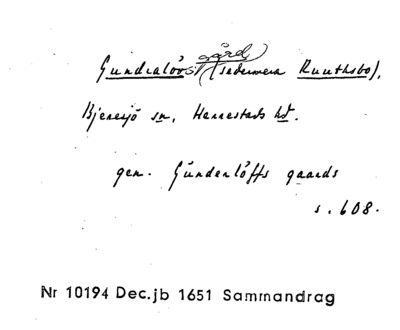 gård
Gundralövs (sedermera Ruuthsbo),
Bjeresjö sn, Herrestads hd.
gen. Gúnderlöffs gaards
s. 608.
Nr 10194 Dec.jb 1651 Sammandrag